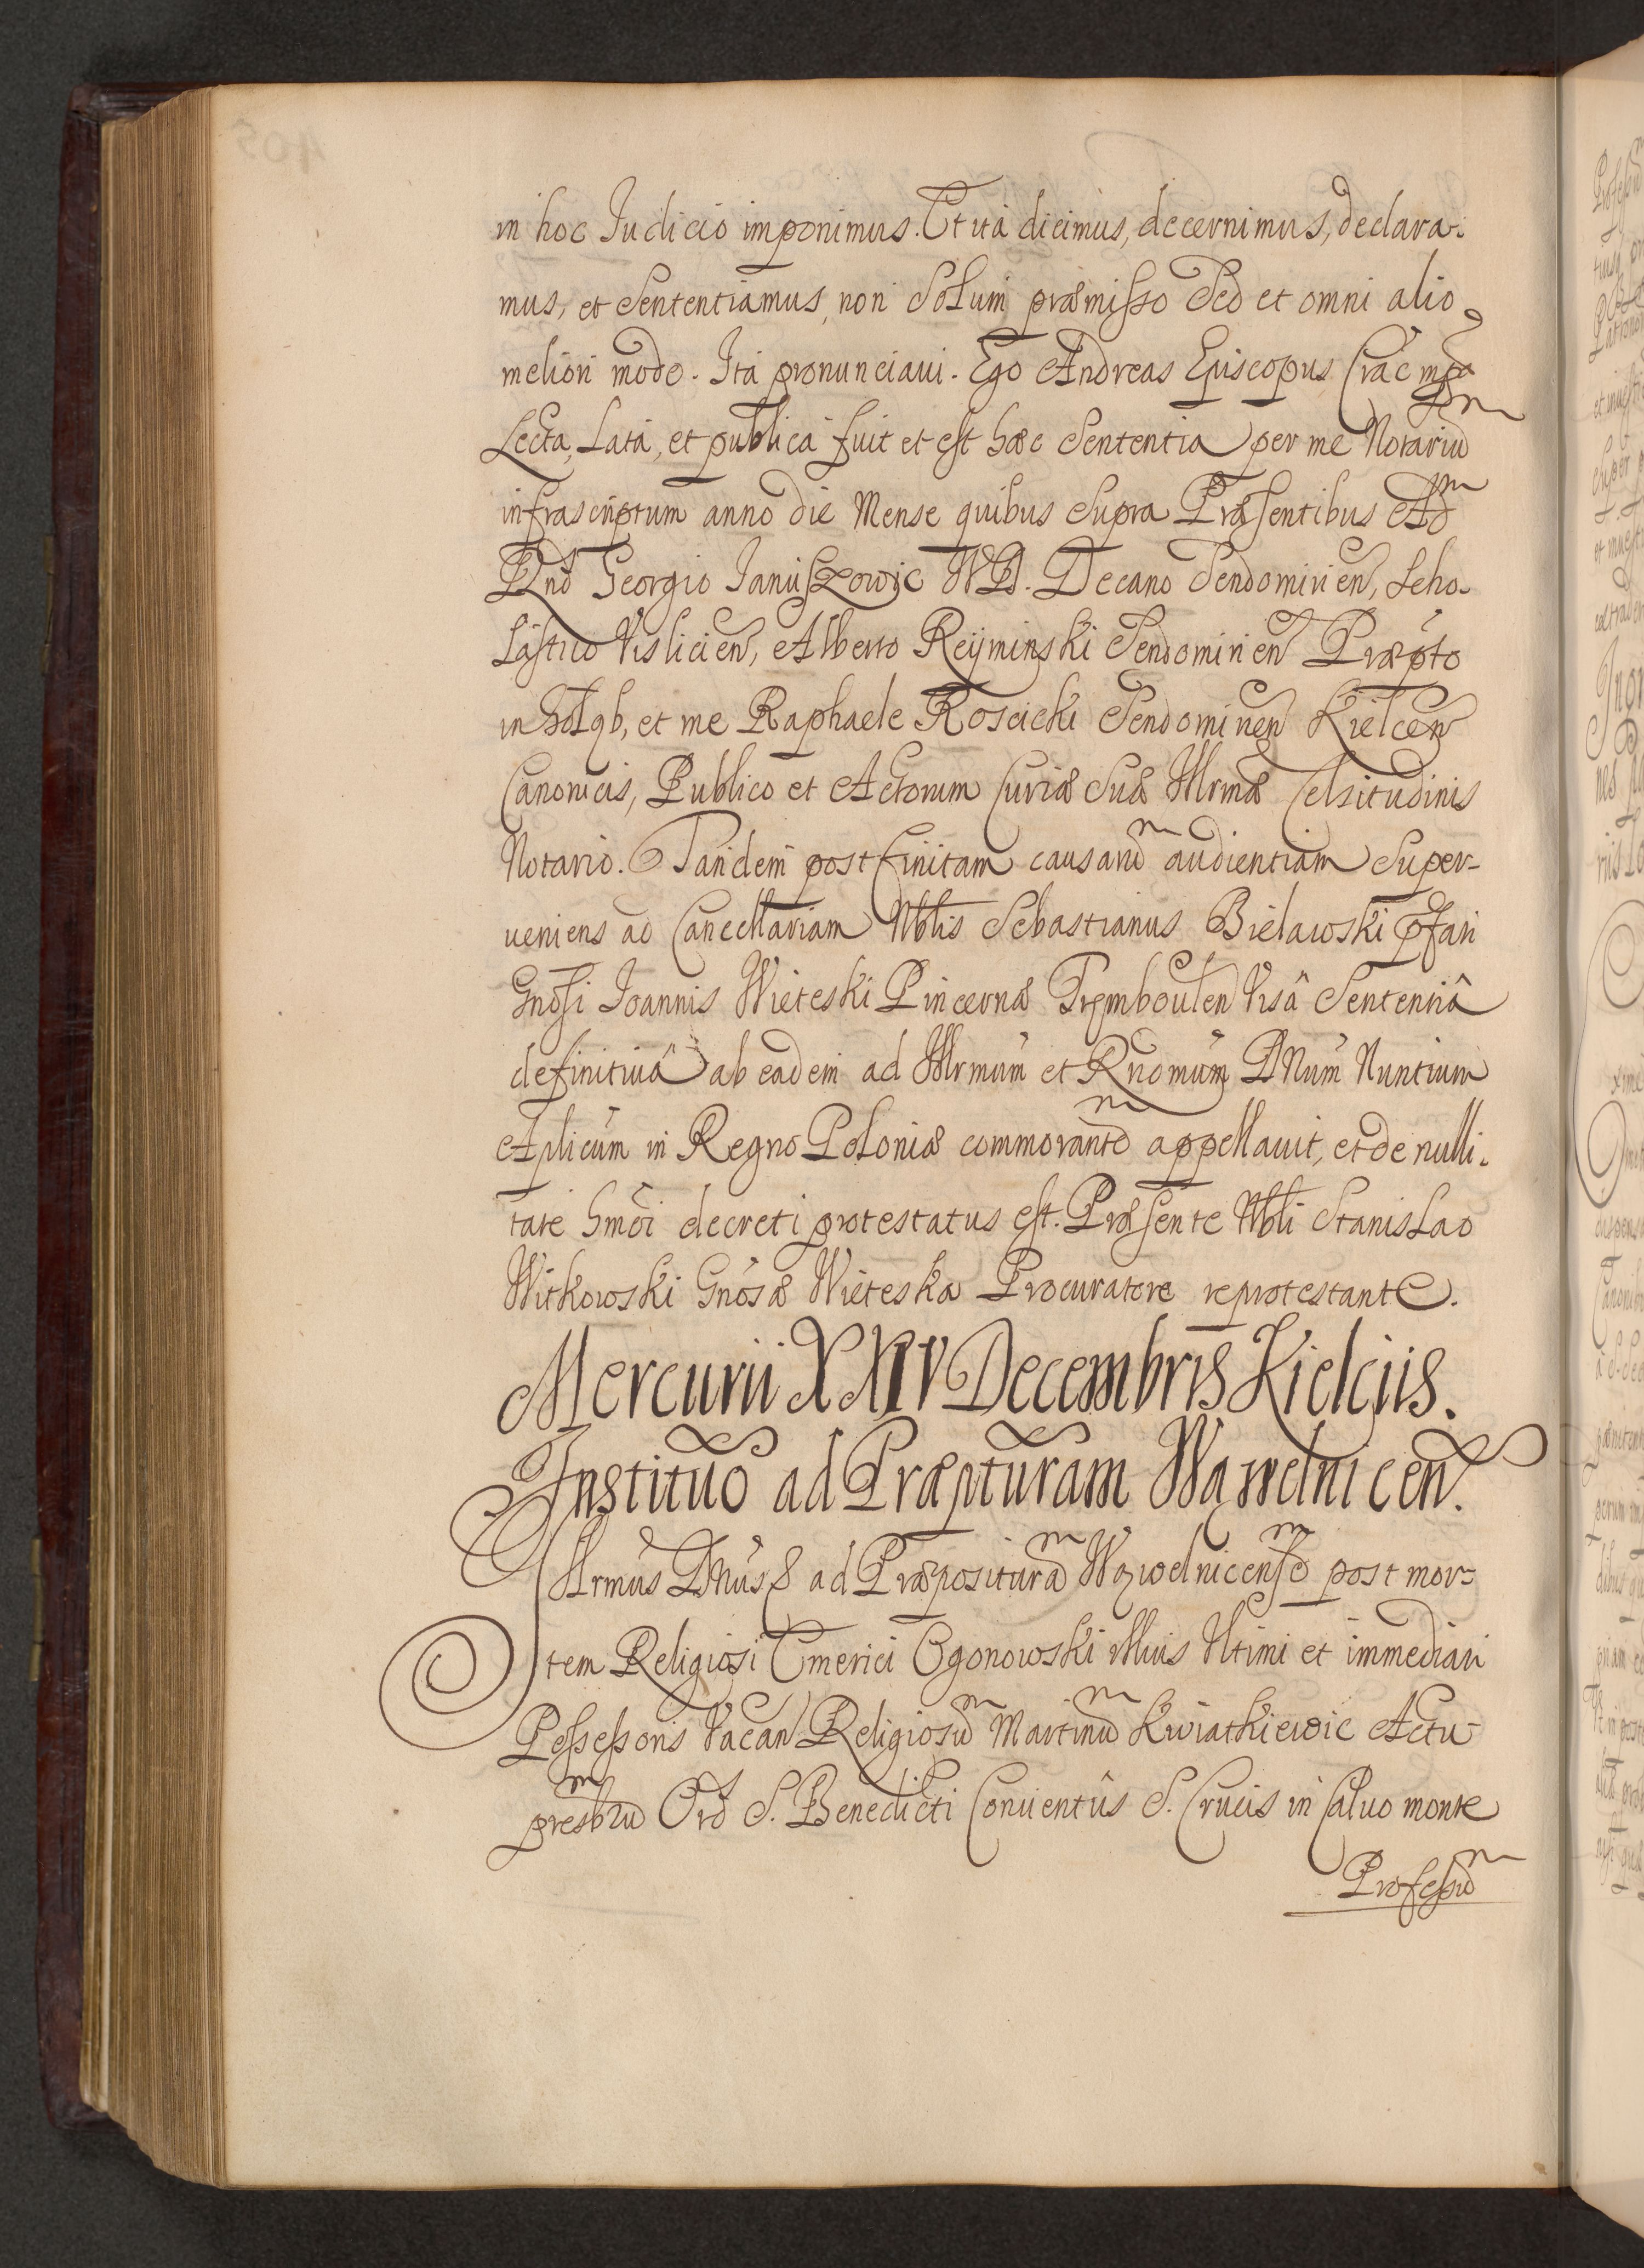 in hoc Iudicio imponimus. Et ita dicimus, decernimus, declara-
mus, et Sententiamus, non Solum præmisso Sed et omni alio
meliori modo. Ita pronunciavi. Ego Andreas Episcopus Crac mpa
Lecta, Lata, et publica fuit et est hæc Sententia per me Notariũ
infrascriptum anno die Mense quibus Supra Præsentibus Adm
Rnd Georgio Ianuszowic Decano Sendomirien, Scho-
Lastico Visliciẽn, Alberto Reyminski Sendomirien Præpto
in Gołąb, et me Raphaele Roscicki Sendomiren Kielceñ
Canonicis, Publico et Actorum Curiæ Suæ Illrmæ Celsitudinis
Notario. Tandem post finitam causarũ audientiam Super-
veniens ad Cancellariam Nblis Sebastianus Bielawski
Gnosi Ioannis Wieteski Pincernæ Tremboulen Visâ Sententiâ
definitivâ ab eadem ad Illrmum et Rndmum Dnum Nuntium
Aplicum in Regno Poloniæ commorantẽ appellavit, et de nulli-
tate hmoi decreti protestatus est. Præsente Nbli Stanislao
Witkowski Gnosæ Wieteska Procuratore reprotestante.
Mercurii XXIV Decembris Kielciis.
Institutio ad Præpturam Wąwelnicen.
Illrmus Dnus ad Præposituram Wąwelnicensẽ post mor-
tem Religiosi Emerici Ogonowski illius Ultimi et immediati
Possessoris Vacan Religiosũ Martinũ Kwiatkiewic Actu
presbrũ Ord S. Benedicti Conventûs S. Crucis in Calvo monte
Professũ